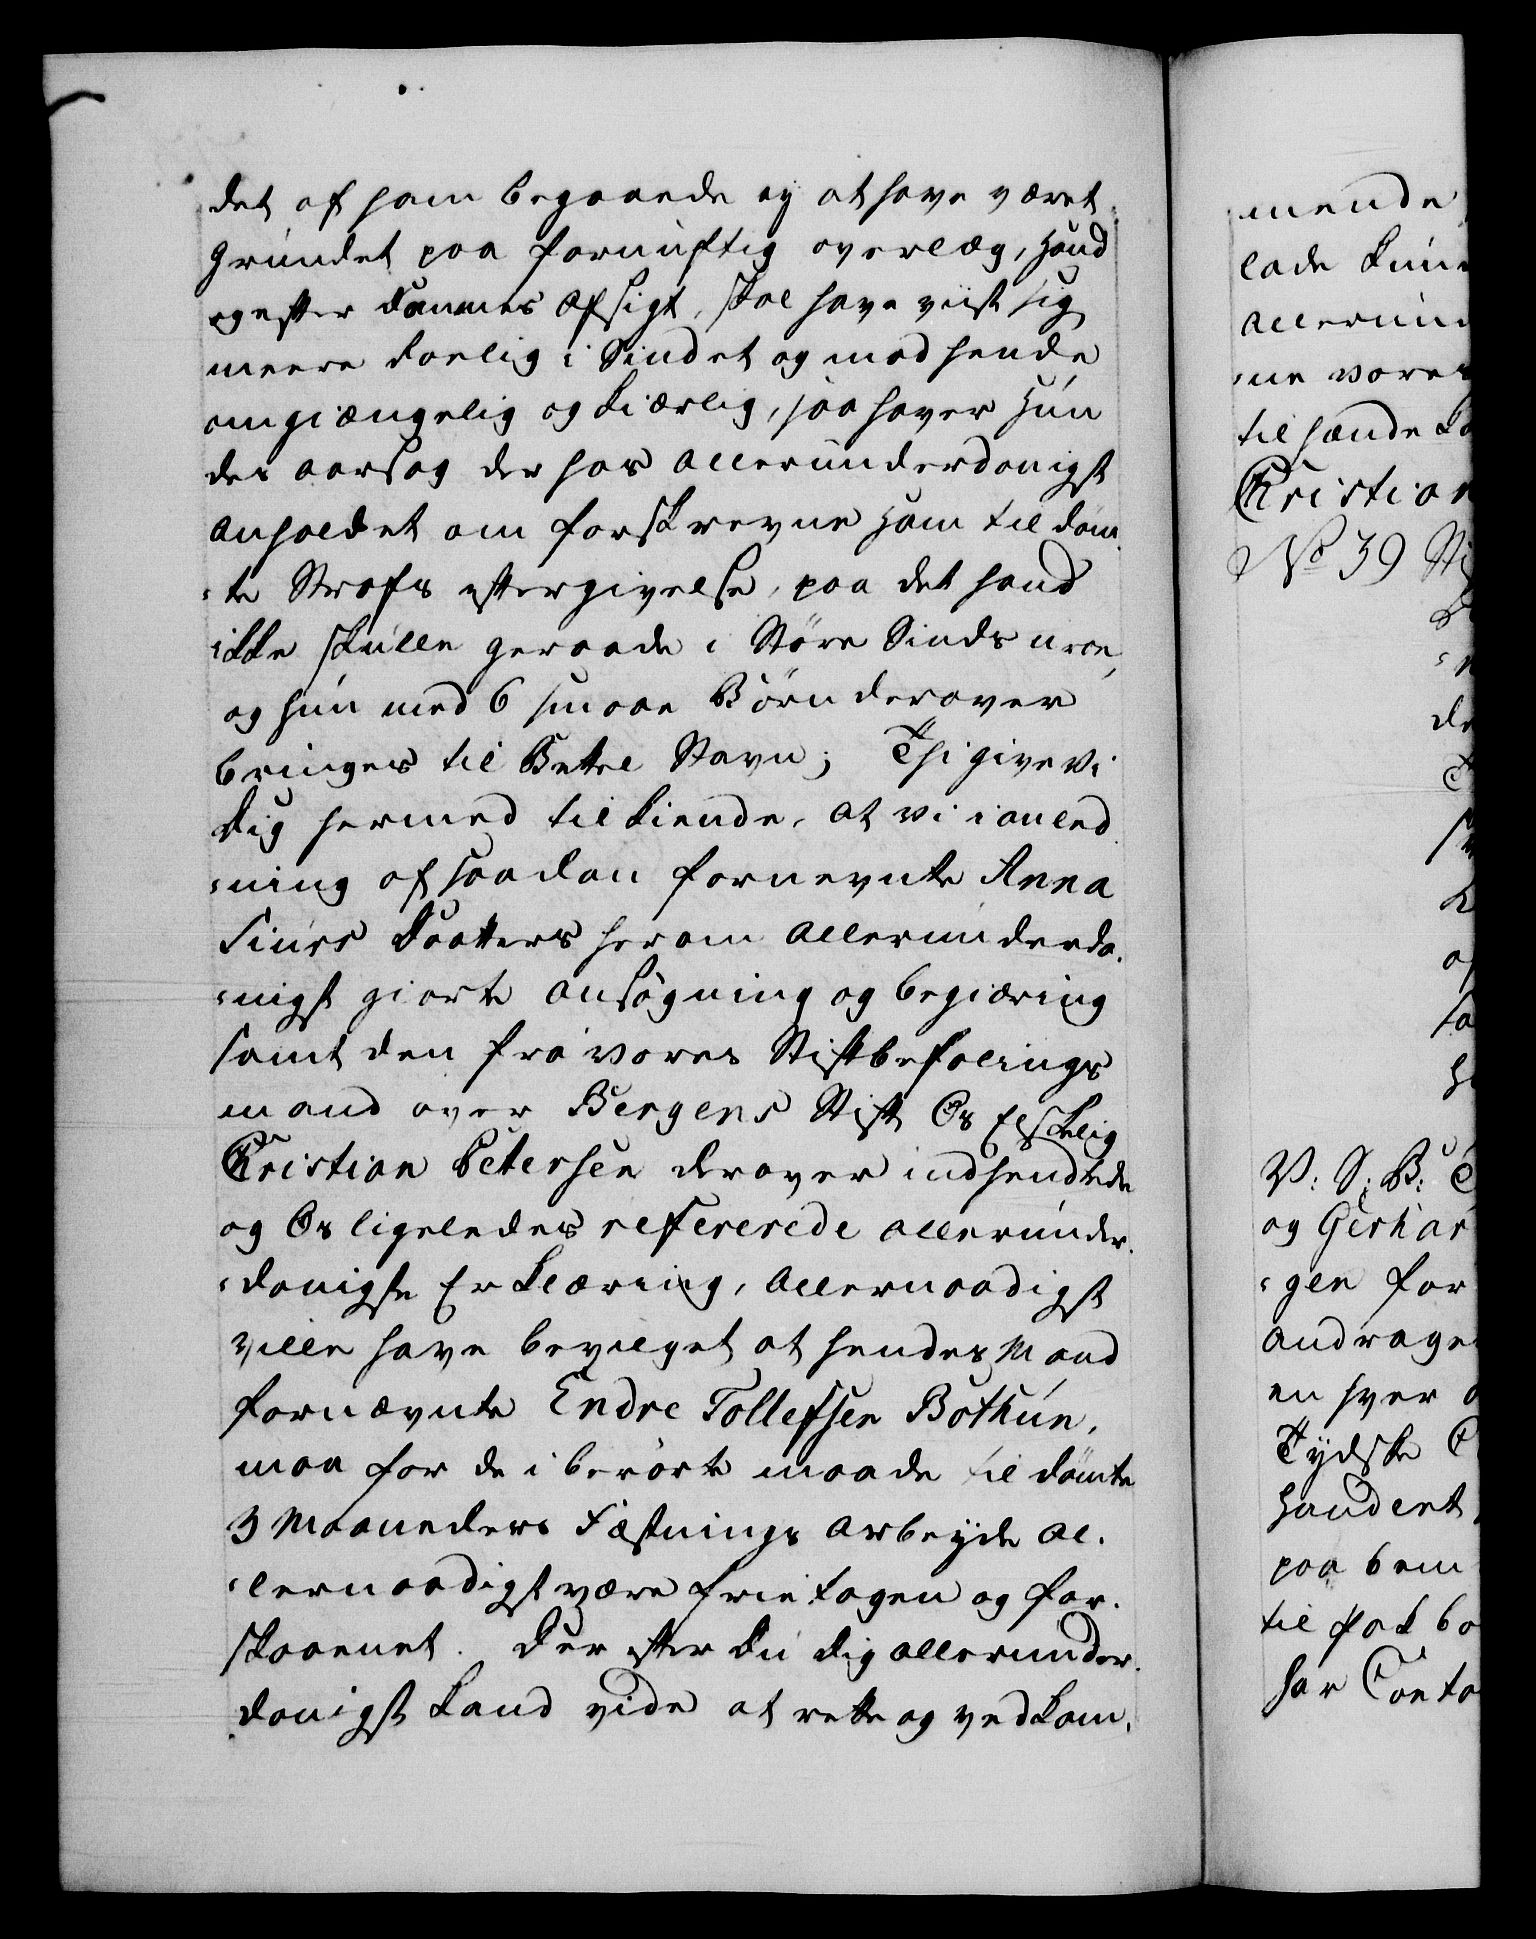 det af ham begaaede ey at have været
grundet paa fornuftig overlæg, Hand
og efter Dommes Afsigt, skal have viist sig
meere Roelig i Sindet og mod hende
omgiængelig og Kiærlig, saa haver Hun
des aarsag der hos allerunderdanigst
anholdet om forskrevne Ham til döm¬
¬te Strafs eftergivelse, paa det hand
ikke skulle geraade i Störe Sinds uroe,
og hun med 6 smaae Börn derover
bringes til Bettel Stavn; Thi give vi
Dig hermed tilkiende, at vi i anled¬
¬ning af saadan fornevnte Anna
Siurs Daatters herom allerunderda¬
¬nigst giorte ansögning og begiæring
samt den fra vores Stiftbefalings
mand over Bergens Stift Os Elskelig
Christian Petersen derover indsendede
og Os ligeledes refererede allerunder¬
¬danigste Erklæring, Allernaadigst
ville have bevilget at hendes Mand
fornævnte Endre Tollefsen Bothun,
maa for de i berörte maade til dömte
3 Maaneders Fæstnings Arbeyde Al¬
¬lernaadigst være frietagen og for¬
skaanet. Der efter du dig allerunder¬
danigst Kand vide at rette og vedkom¬
mende
lade
¬ne vores
til hænde
Christian
No 39
V: S: B:
og Gerhar
¬gen for
andrage
en hver
Tydske
Handlet
paa bem
til
har Conto